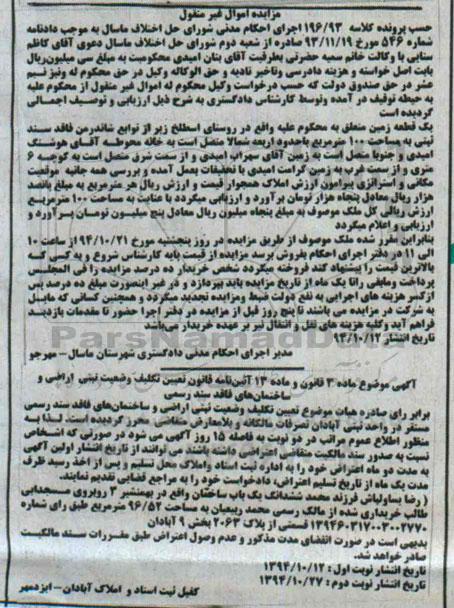 مزایده اموال غیر منقول
حسب پرونده کلاسه ۱۹۶/۹۳ اجرای احکام مدنی شورای حل اختلاف ماسال به موجب دادنامه
شماره ۵۴۶ مورخ ۹۳/۱۱/۱۹ صادره از شعبه دوم شورای حل اختلاف ماسال دعوی آقای کاظم
سنایی با وکالت خانم سمیه حضرتی بطرفیت آقای بتان امیدی محکومیت به مبلغ سی میلیون ریال
بابت اصل خواسته و هزینه دادرسی و تاخیر تادیه و حق الوکاله وکیل در حق محکوم له ونیز نیم
عشر در حق صندوق دولت که حسب درخواست وکیل محکوم له اموال غیر منقول از محکوم علیه
به حیطه توقیف در آمده وتوسط کارشناس دادگستری به شرح ذیل ارزیابی و توصیف اجمالی
گردیده است
یک قطعه زمین متعلق به محکوم علیه واقع در روستای اسطلخ زیر از توابع شاندرمن فاقد سند
ثبتی به مساحت ۱۰۰ مترمربع باحدود اربعه شمالا متصل است به خانه محوطه آقای هوشنگ
امیدی و جنوبا متصل است به زمین آقای سهراب امیدی و از سمت شرق متصل است به کوچه ۶
متری و از سمت غرب به زمین کرامت امیدی با تحقیقات بعمل آمده و بررسی همه جانبه موقعیت
مکانی و استراتژی پیرامون ارزش املاک همجوار قیمت و ارزش ریال هر مترمربع به مبلغ پانصد
هزار ریال معادل پنجاه هزار تومان برآورد و ارزیابی میگردد با عنایت به مساحت ۱۰۰ مترمربع
ارزش ریالی کل ملک موصوف به مبلغ پنجاه میلیون ریال معادل پنج میلیون تومان برآورد و
ارزیابی و اعلام میگردد
بنابراین مقرر شده ملک موصوف از طریق مزایده در روز پنجشنبه مورخ ۹۴/۱۰/۲۱ از ساعت ۱۰
الی ۱۱ در دفتر اجرای احکام بفروش برسد مزایده از قیمت پایه کارشناس شروع و به کسی که
بالاترین قیمت را پیشنهاد کند فروخته میگردد شخص خریدار ده درصد مزایده را فی المجلس
پرداخت ومابقی راتا یک ماه از تاریخ مزایده باید بپردازد و در غیر اینصورت مبلغ ده درصد پس
ازکسر هزینه های اجرایی به نفع دولت ضبط ومزایده تجدید میگردد و همچنین کسانی که مایل
به شرکت در مزایده می باشند تا پنج روز قبل از مزایده در دفتر اجرا حضور تا مقدمات بازدید
فراهم آید وکلیه هزینه های نقل و انتقال نیز بر عهده خریدار می‌باشد
تاریخ انتشار ۹۴/۱۰/۱۲
مدیر اجرای احکام مدنی دادگستری شهرستان ماسال – مهرجو
ParsNamadData
آگهی موضوع ماده ۳ قانون و ماده ۱۳ آئین‌نامه قانون تعیین تکلیف وضعیت ثبتی اراضی و
ساختمان‌های فاقد سند رسمی
برابر رای صادره هیات موضوع تعیین تکلیف وضعیت ثبتی اراضی و ساختمان‌های فاقد سند رسمی
مستقر در واحد ثبتی آبادان تصرفات مالکانه و بلامعارض متقاضی محرز گردیده است. لذا به
منظور اطلاع عموم مراتب در دو نوبت به فاصله ۱۵ روز آگهی می شود در صورتی که اشخاص
نسبت به صدور سند مالکیت متقاضی اعتراضی داشته باشند می توانند از تاریخ انتشار اولین آگهی
به مدت دو ماه اعتراض خود را به اداره ثبت اسناد واملاک محل تسلیم و پس از اخذ رسید ظرف
مدت یک ماه از تاریخ تسلیم اعتراض، دادخواست خود را به مراجع قضایی تقدیم نمایند.
( رضا یساولیانی فرزند محمد ششدانگ یک باب ساختمان واقع در بهمنشیر ۳ روبروی مسجدابی
طالب خریداری شده از مالک رسمی محمد ربیعیان به مساحت ۹۶/۵۲ مترمربع طبق رای شماره
۱۳۹۴۶۰۳۱۷۰۰۳۰۰۲۷۷۰ قسمتی از پلاک ۲۰۶۳ بخش ۹ آبادان
بدیهی است در صورت انقضای مدت مذکور و عدم وصول اعتراض طبق مقررات سند مالکیت
صادر خواهد شد.
تاریخ انتشار نوبت اول: ۱۳۹۴/۱۰/۱۲
تاریخ انتشار نوبت دوم: ۱۳۹۴/۱۰/۲۷
کفیل ثبت اسناد و املاک آبادان – ایزدمهر